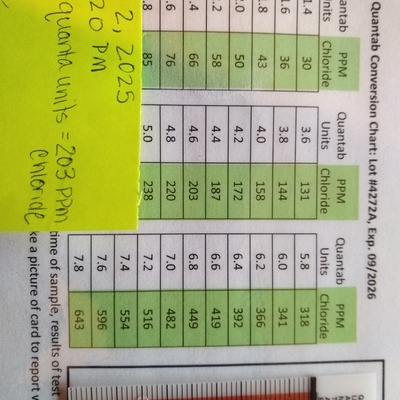 Quantab Conversion Chart: Lot #4272A, Exp. 09/2026
Quantab Units PPM Chloride Quantab Units PPM Chloride Quantab Units PPM Chloride
.4 30 3.6 131 5.8 318
.6 36 3.8 144 6.0 341
.8 43 4.0 158 6.2 366
.0 50 4.2 172 6.4 392
.2 58 4.4 187 6.6 419
.4 66 4.6 203 6.8 449
.6 76 4.8 220 7.0 482
.8 85 5.0 238 7.2 516
7.4 554
7.6 596
7.8 643
2, 2025
20 PM
quanta units = 203 ppm
Chloride
time of sample, results of test
ke a picture of card to report